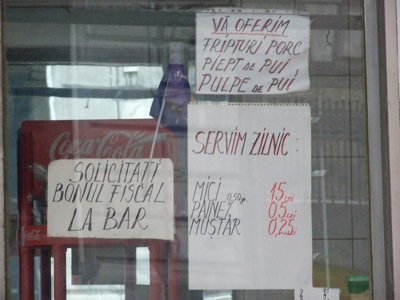 VĂ OFERIM
FRIPTURI PORC
PIEPT DE PUI
PULPE DE PUI
Coca-Cola
SOLICITATI
BONUL FISCAL
LA BAR
SERVIM ZILNIC:
MICI 15 Lei
PAINE 0,50g. 0,5 Lei
MUȘTAR 0,25
Coca-Cola